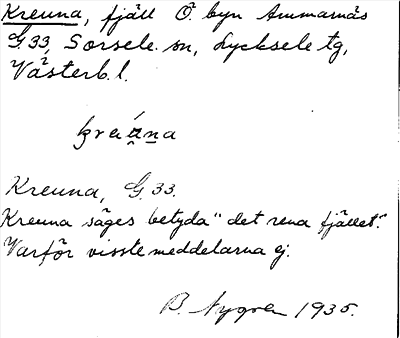 Kreuna, fjäll Ö. byn Ammarnäs
G 33, Sorsele sn, Lycksele tg,
Västerb. l.
Kreuna, G. 33.
Kreuna säges betyda "det rena fjället".
Varför visste meddelarna ej.
B. Nygren 1935.